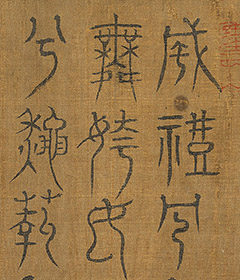 成禮兮
舞姱女
兮秋鞠